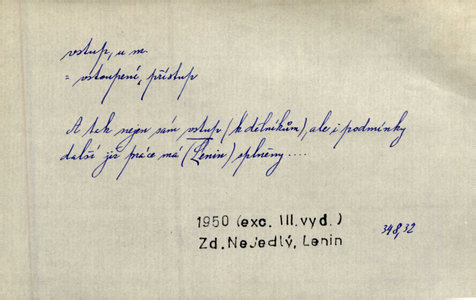 vstup, u m.
= vstoupení, přístup
A tak nejen sám vstup (k dělníkům), ale i podmínky
další již práce má (Lenin) splněny....
1950 (exc. III.vyd.)
Zd. Nejedlý, Lenin
348,32